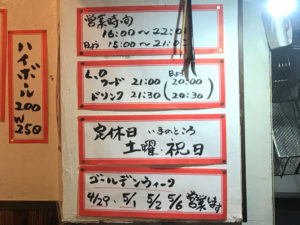 ハイボール
200
W
250
営業時間
16:00〜22:00
日よう 15:00〜21:00
L.O 日よう
フード 21:00 (20:00)
ドリンク 21:30 (20:30)
定休日 いまのところ
土曜・祝日
ゴールデンウィーク
4/29. 5/1 5/2 5/6 営業します